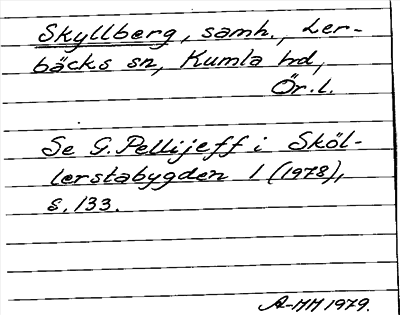 Skyllberg, samh., Ler-
bäcks sn, Kumla hd,
Ör. l.
Se G. Pellijeff i Sköl-
lerstabygden 1 (1978),
s. 133.
A-MH 1979.